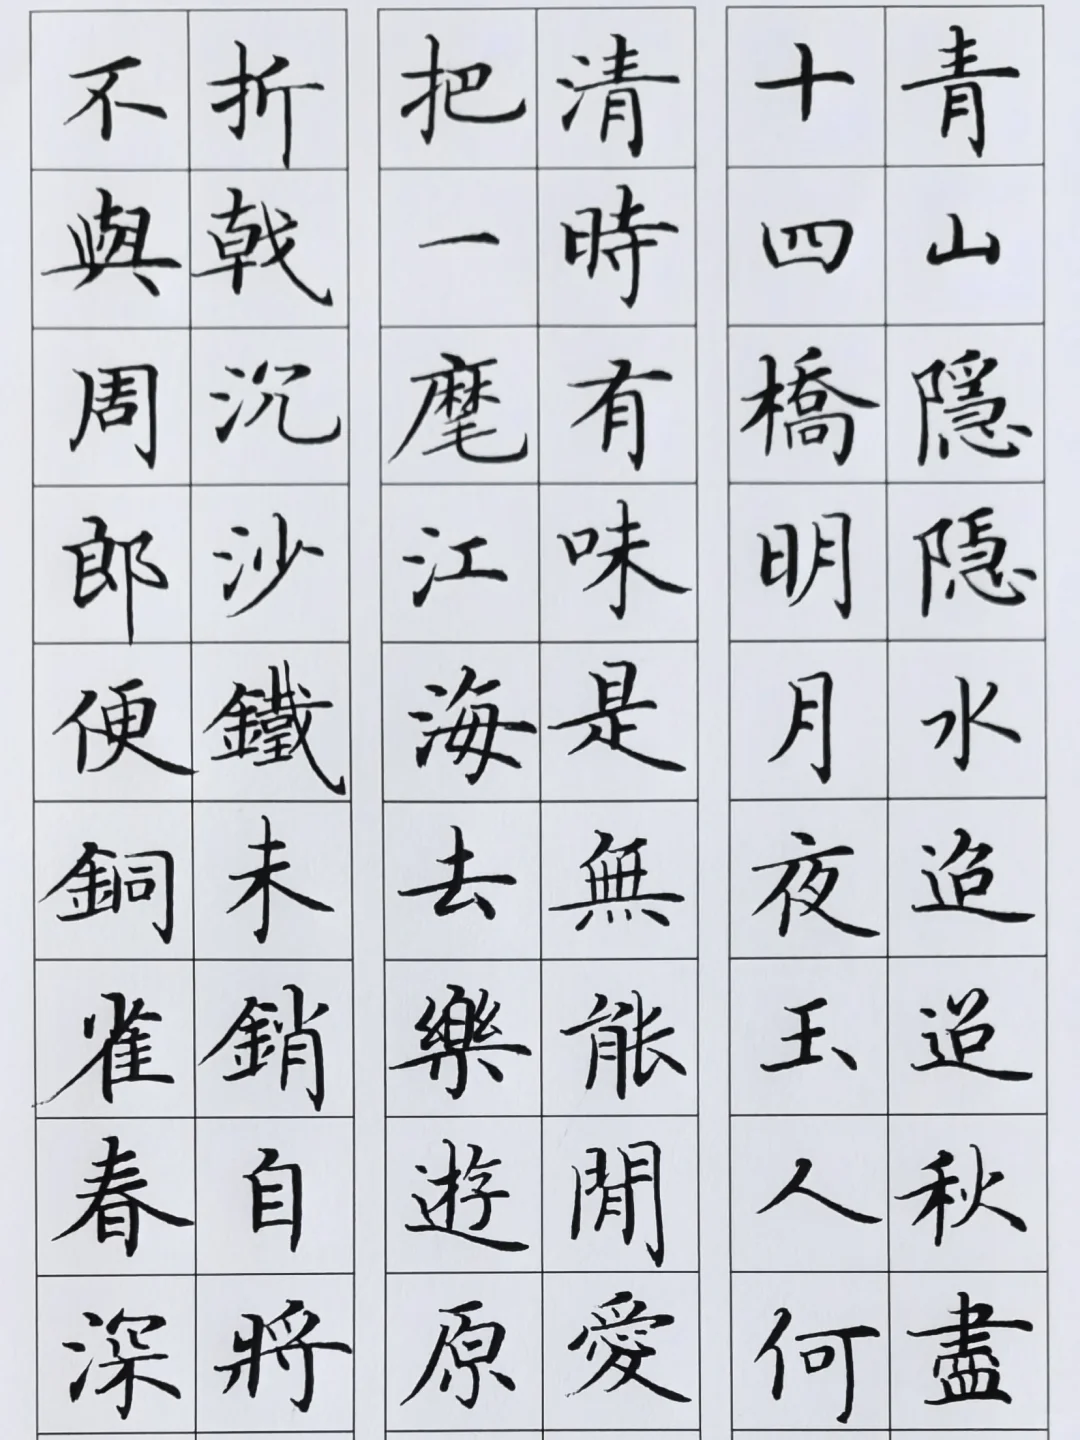 青山隱隱水迢迢秋盡
十四橋明月夜玉人何
清時有味是無能閒愛
把一麾江海去樂遊原
折戟沉沙鐵未銷自將
不與周郎便銅雀春深